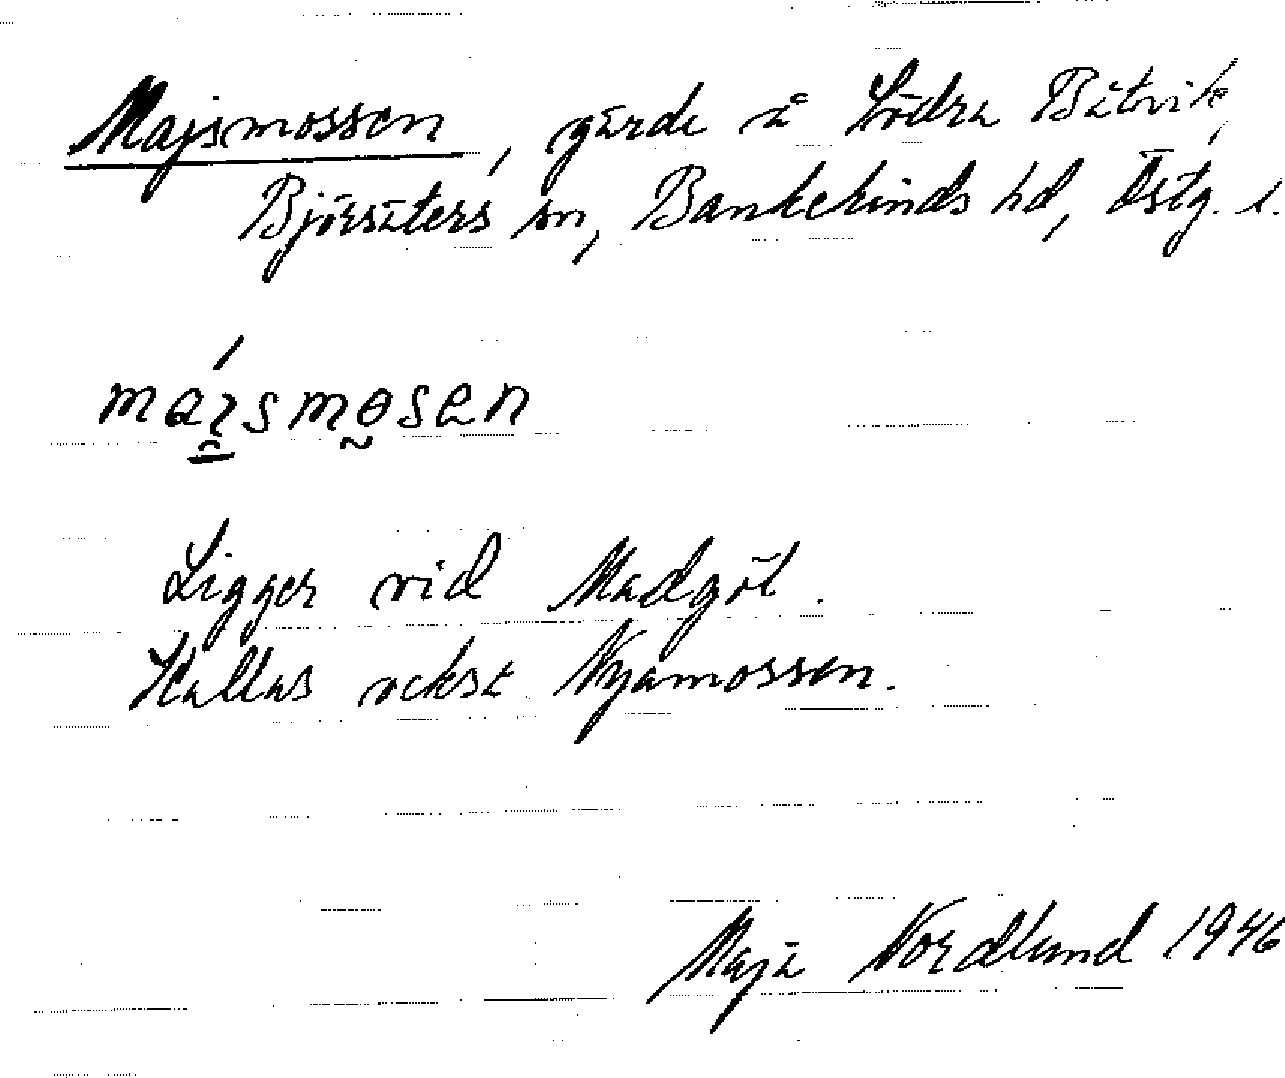 Majsmossen, gärde å Södra Båtvik,
Björsäters sn, Bankekinds hd, Östg. l.
máısmosen
Ligger vid Madgöl.
Kallas också Nyamossen.
Maja Nordlund 1946